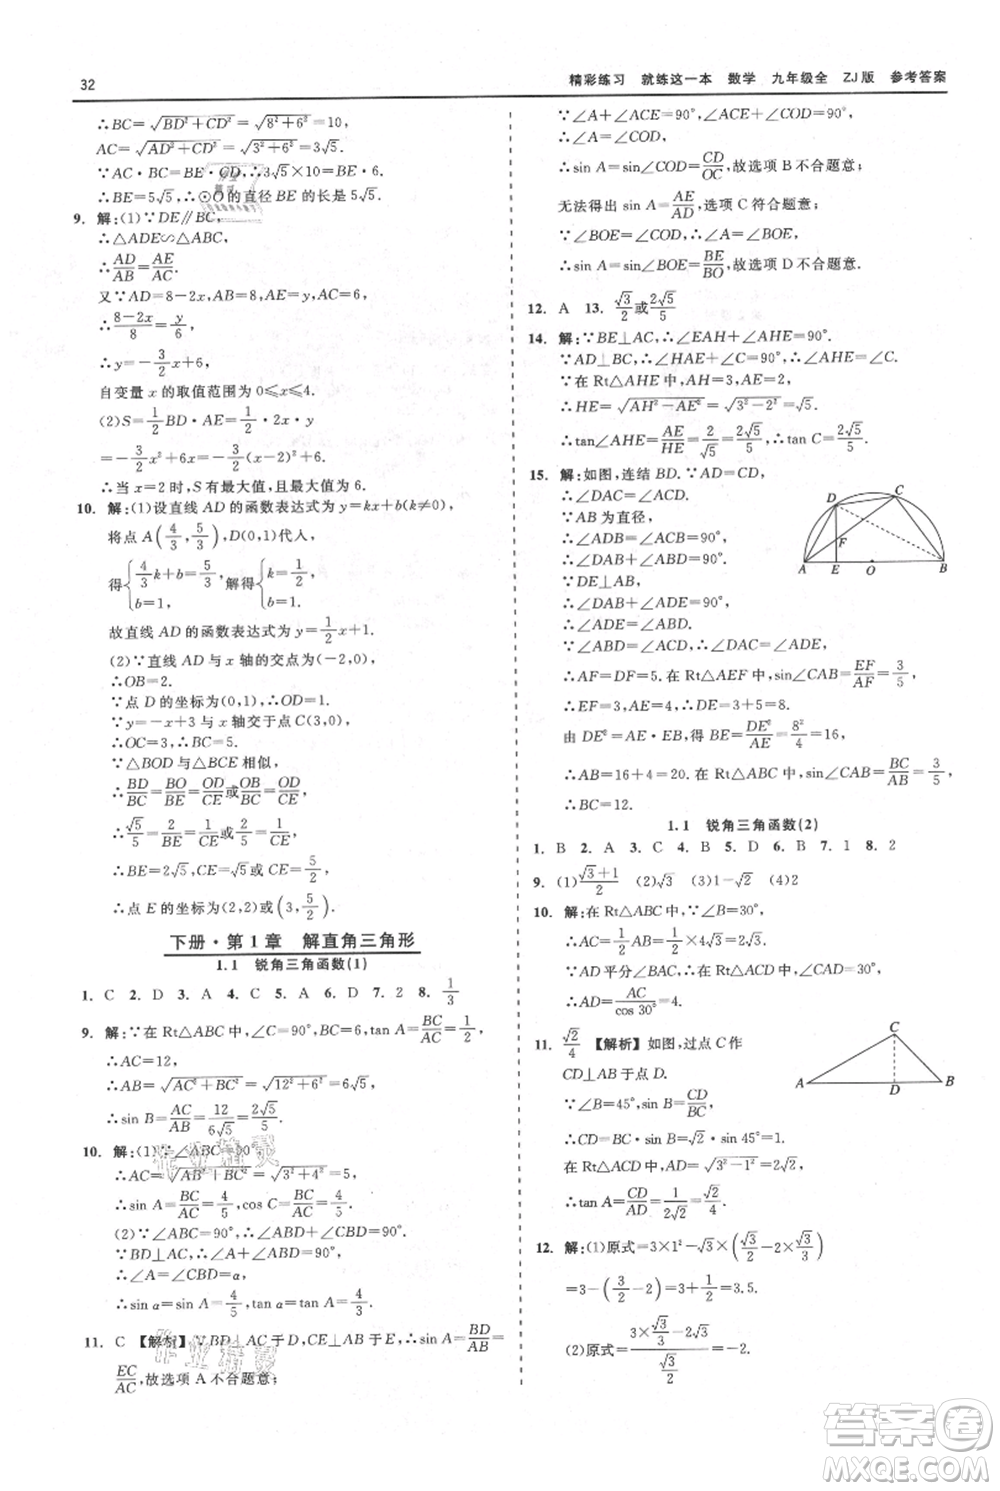 32
精彩练习 就练这一本 数学 九年级全 ZJ版 参考答案
∴BC=√(BD²+CD²)=√(8²+6²)=10,
AC=√(AD²+CD²)=√(3²+6²)=3√5.
∵AC·BC=BE·CD,∴3√5×10=BE·6.
∴BE=5√5,∴⊙O的直径 BE 的长是 5√5.
9. 解:(1)∵DE∥BC,
∴△ADE∽△ABC,
∴AD/AB=AE/AC.
又∵AD=8-2x,AB=8,AE=y,AC=6,
∴(8-2x)/8=y/6,
∴y=-3/2x+6,
自变量 x 的取值范围为 0≤x≤4.
(2)S=1/2BD·AE=1/2·2x·y
=-3/2x²+6x=-3/2(x-2)²+6,
∴当 x=2 时,S 有最大值,且最大值为 6.
10. 解:(1)设直线 AD 的函数表达式为 y=kx+b(k≠0),
将点 A(4/3,5/3),D(0,1)代人,
得{4/3k+b=5/3, b=1,解得{k=1/2, b=1.
故直线 AD 的函数表达式为 y=1/2x+1.
(2)∵直线 AD 与 x 轴的交点为(-2,0),
∴OB=2.
∵点 D 的坐标为(0,1),∴OD=1.
∵y=-x+3 与 x 轴交于点 C(3,0),
∴OC=3,∴BC=5.
∵△BOD 与△BCE 相似,
∴BD/BC=BO/BE=OD/CE或BD/BE=BO/BC=OD/CE,
∴√5/5=2/BE=1/CE或√5/BE=2/5=1/CE,
∴BE=2√5,CE=√5或CE=5/2,
∴点 E 的坐标为(2,2)或(3,5/2).
下册·第 1 章 解直角三角形
1.1 锐角三角函数(1)
1. C 2. D 3. A 4. C 5. A 6. D 7. 2 8. 1/3
9. 解:∵在 Rt△ABC 中,∠C=90°,BC=6,tan A=BC/AC=1/2,
∴AC=12,
∴AB=√(AC²+BC²)=√(12²+6²)=6√5,
∴sin B=AC/AB=12/(6√5)=2√5/5.
10. 解:(1)∵∠ABC=90°,
∴AC=√(AB²+BC²)=√(3²+4²)=5,
∴sin A=BC/AC=4/5,cos C=BC/AC=4/5.
(2)∵∠ABC=90°,∴∠ABD+∠CBD=90°.
∵BD⊥AC,∴∠A+∠ABD=90°,
∴∠A=∠CBD=α,
∴sin α=sin A=4/5,tan α=tan A=4/3.
11. C 【解析】∵BD⊥AC 于 D,CE⊥AB 于 E,∴sin A=BD/AB=
EC/AC,故选项 A 不合题意;
∵∠A+∠ACE=90°,∠ACE+∠COD=90°,
∴∠A=∠COD,
∴sin A=sin∠COD=CD/OC,故选项 B 不合题意;
无法得出 sin A=AE/AD,选项 C 符合题意;
∵∠BOE=∠COD,∴∠A=∠BOE,
∴sin A=sin∠BOE=BE/BO,故选项 D 不合题意.
12. A 13. √3/2或2√5/5
14. 解:∵BE⊥AC,∴∠EAH+∠AHE=90°.
∵AD⊥BC,∴∠EAH+∠C=90°,∴∠AHE=∠C.
∵在 Rt△AHE 中,AH=3,AE=2,
∴HE=√(AH²-AE²)=√(3²-2²)=√5,
∴tan∠AHE=AE/HE=2/√5=2√5/5,∴tan C=2√5/5.
15. 解:如图,连结 BD.∵AD=CD,
∴∠DAC=∠ABD.
∵AB 为直径,
∴∠ADB=∠ACB=90°,
∴∠DAB+∠ABD=90°.
∵DE⊥AB,
∴∠DAB+∠ADE=90°,
∴∠ADE=∠ABD.
∵∠ABD=∠ACD,∴∠DAC=∠ADE,
∴AF=DF=5.在 Rt△AEF 中,sin∠CAB=EF/AF=3/5,
∴EF=3,AE=4,∴DE=3+5=8.
由 DE²=AE·EB,得 BE=DE²/AE=8²/4=16,
∴AB=16+4=20.在 Rt△ABC 中,sin∠CAB=BC/AB=3/5,
∴BC=12.
D C F A E O B
1.1 锐角三角函数(2)
1. B 2. A 3. C 4. B 5. D 6. B 7. 1 8. 2
9. (1)(√3+1)/2 (2)√3 (3)1-√2 (4)2
10. 解:在 Rt△ABC 中,∵∠B=30°,
∴AC=1/2AB=1/2×4√3=2√3.
∵AD 平分∠BAC,∴在 Rt△ACD 中,∠CAD=30°,
∴AD=AC/cos 30°=4.
11. √2/4 【解析】如图,过点 C 作
CD⊥AB 于点 D.
∵∠B=45°,sin B=CD/BC,
∴CD=BC·sin B=√2·sin 45°=1.
在 Rt△ACD 中,AD=√(3²-1²)=2√2,
∴tan A=CD/AD=1/(2√2)=√2/4.
A C D B
12. 解:(1)原式=3×1²-√3×(√3/2-2×√3/2)
=3-(3/2-2)=3+1/2=3.5.